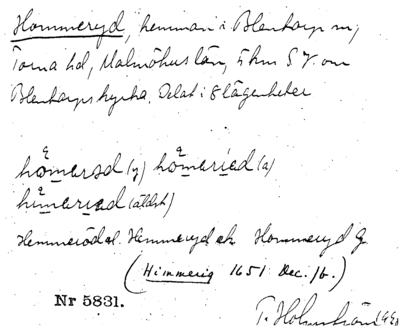 Hommeryd, hemman i Blentarps sn,
Torna hd, Malmöhus län, 5 km S V. om
Blentarps kyrka. Delat i 8 lägenheter
(y) (a)
(äldst)
Hemmeröd al. Hemmeryd ek Hommeryd G
(Himmerig 1651 Dec. jb.)
Nr 5831.
T. Holmström